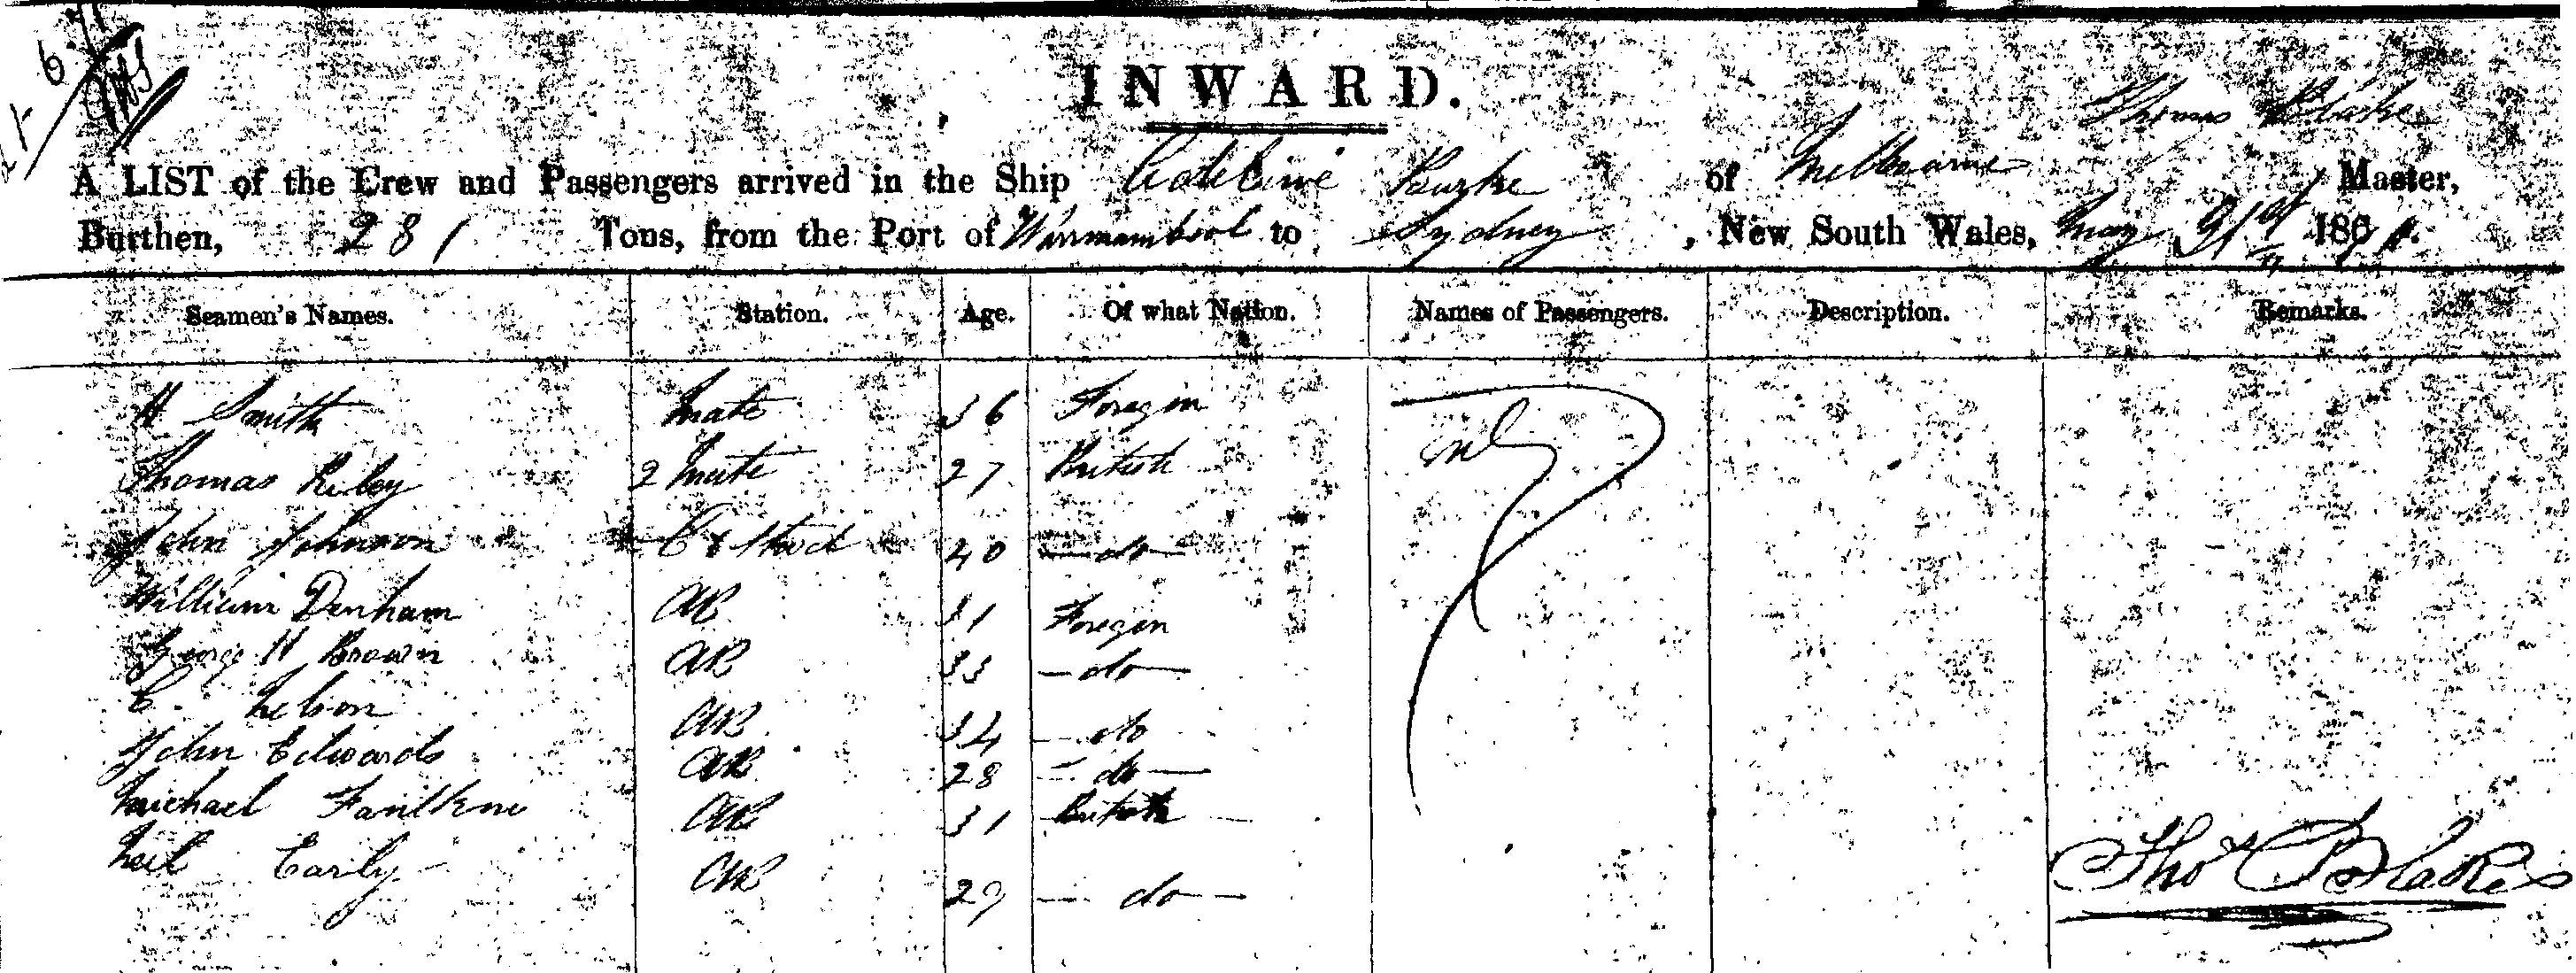 INWARD.
Thomas Blake
A LIST of the Crew and Passengers arrived in the Ship Adeline Burke, of Melbourne Master,
Burthen, 281 Tons, from the Port of Warrnambool to Sydney, New South Wales, May 31st 1871.
Seamen's Names. Station. Age. Of what Nation. Names of Passengers. Description. Remarks.
H Smith Mate 36 Foregin
Thomas Riley 2 Mate 27 British
John Johnson C & Stwd 40 do
William Denham AB 31 Foregin
George H Brown AB 33 do
C. Nelson AB 34 do
John Edwards AB 28 do
Michael Faulkne AB 31 British
Neil Early AB 29 do
Thos Blake